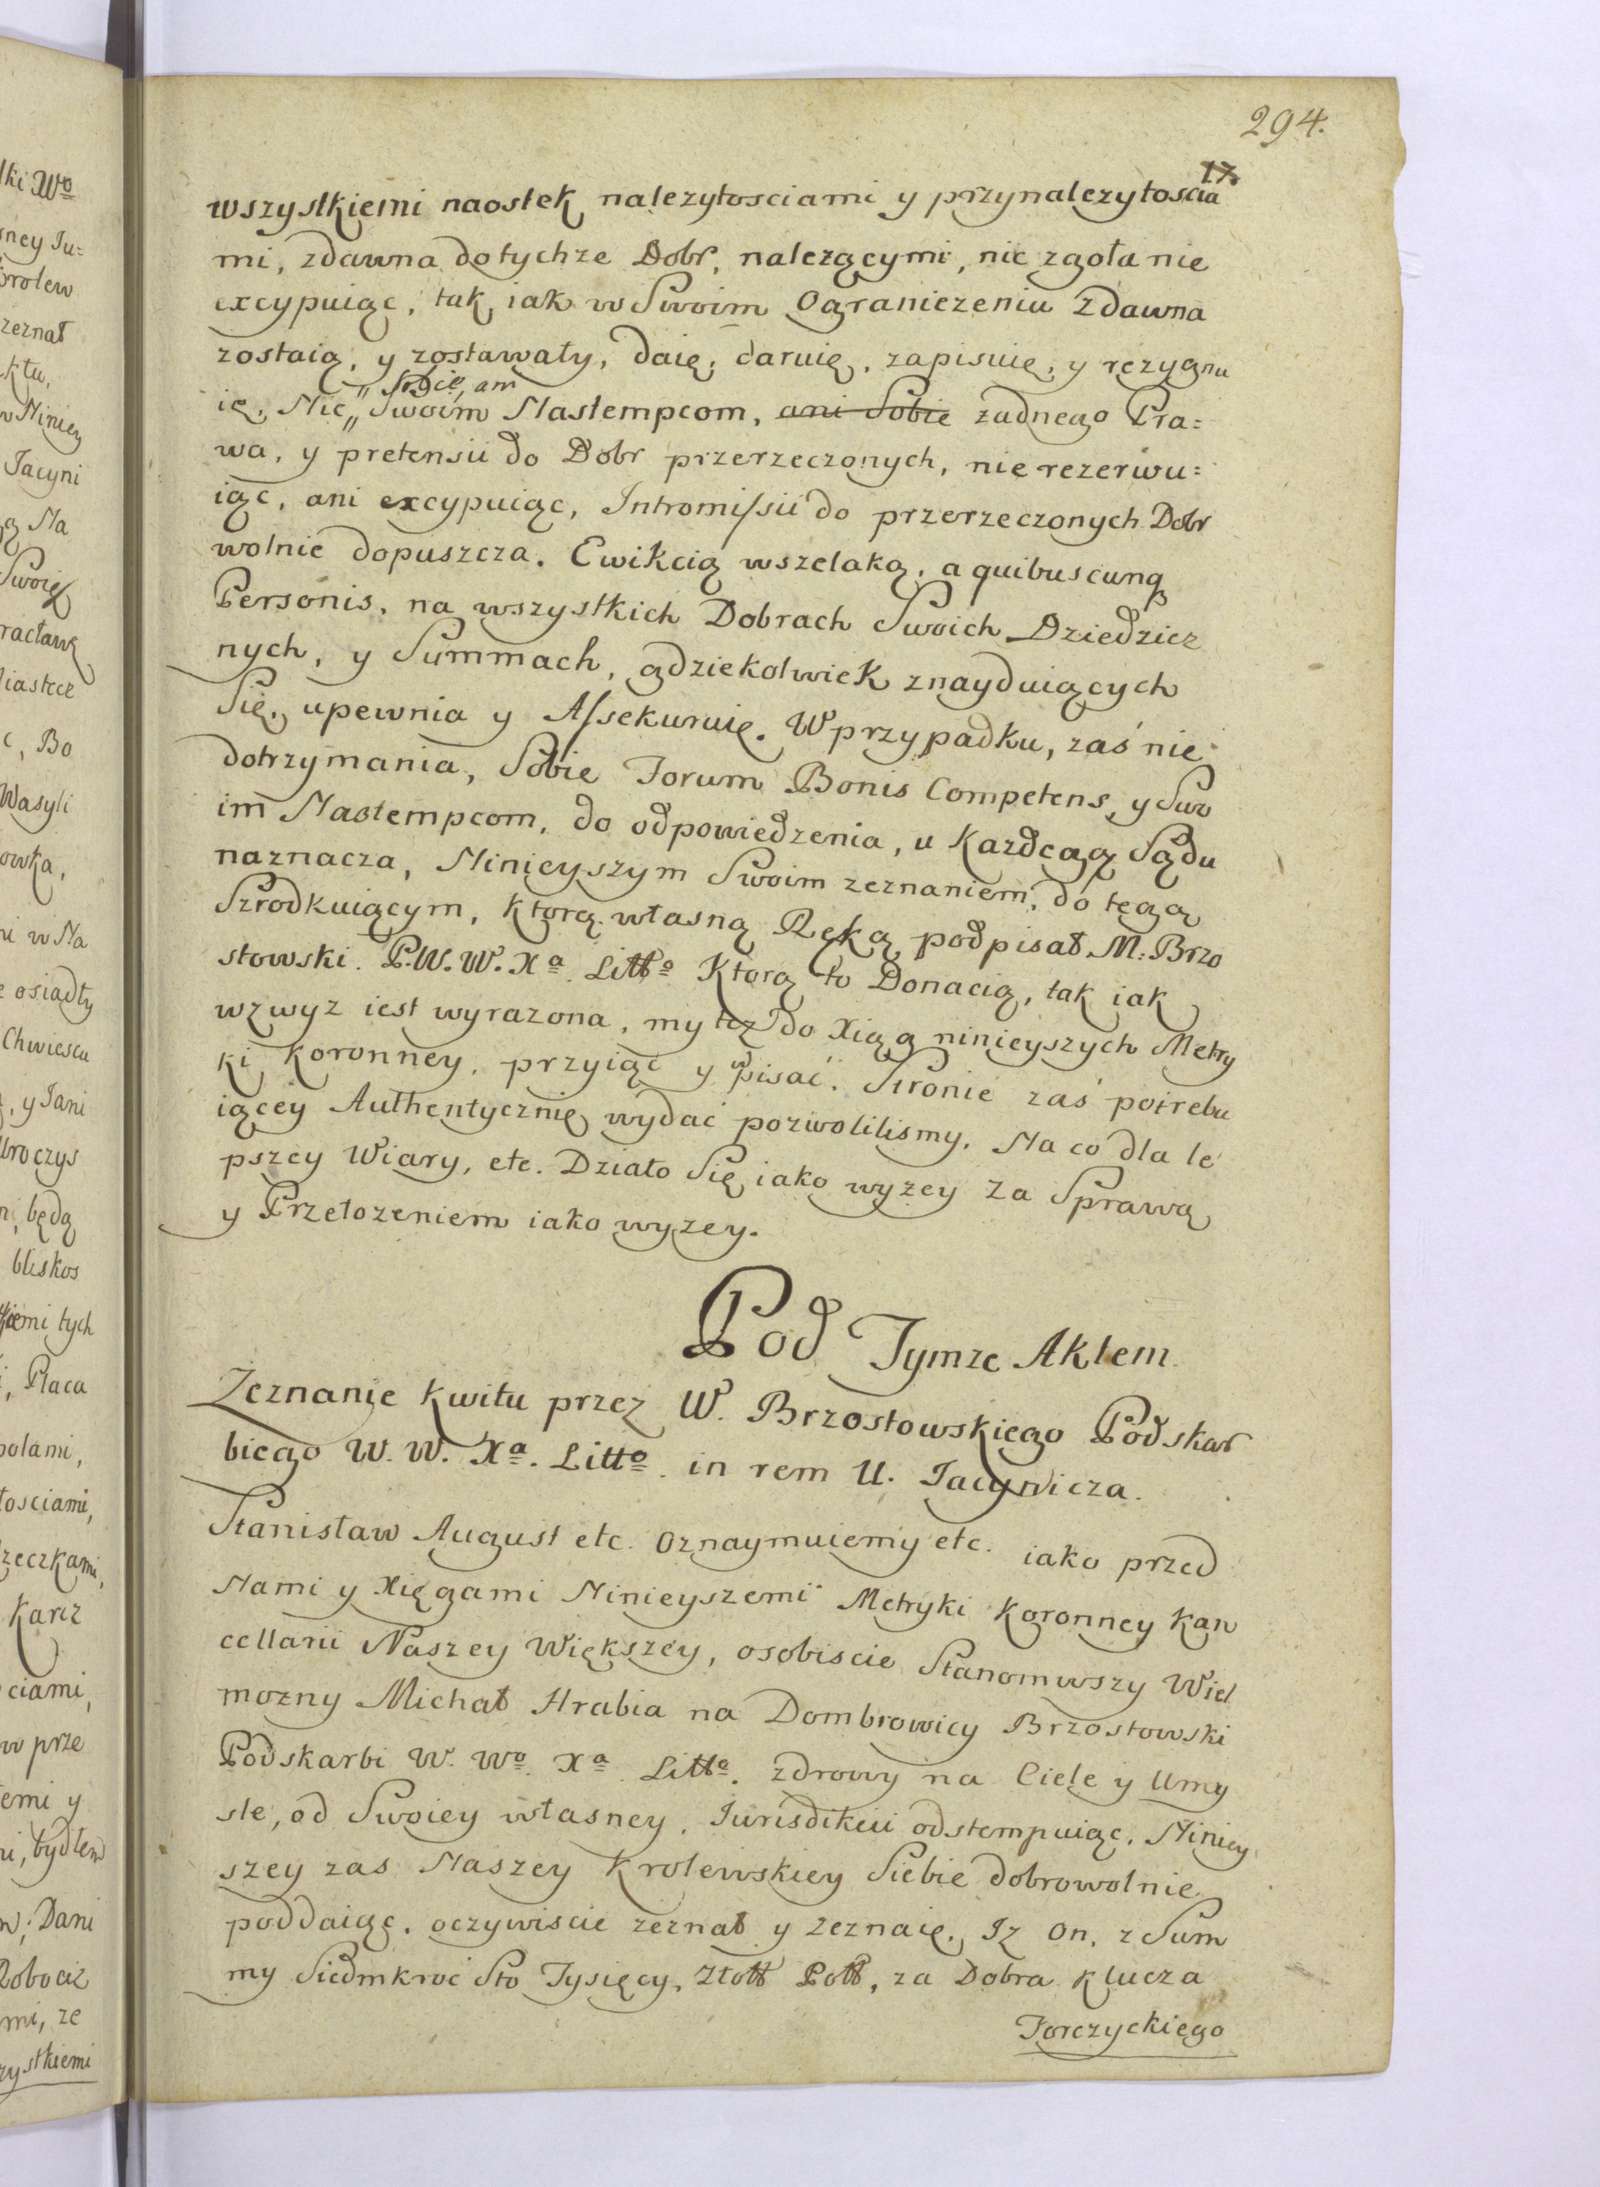 294.
17.
wszystkiemi naostek nalezytosciami y przynalezytoscia
mi, zdawna dotychze Dobr, nalezącymi, nic zgoła nie
excypuiąc, tak iak w Swoim Ograniczeniu Zdawna
zostaią, y zostawały, daię, daruię, zapisuię, y rezygnu
ię, Nic „ Sobie, ani „ Swoim Nastempcom, ani Sobie zadnego Pra=
wa, y pretensii do Dobr przerzeczonych, nie rezerwu=
iąc, ani excypuiąc, Intromissii do przerzeczonych Dobr
wolnie dopuszcza. Ewikcią wszelaką, a quibuscunq
Personis, na wszystkich Dobrach Swoich Dziedzicz
nych, y Summach, gdziekolwiek znayduiących
Się, upewnia y Assekuruię. W przypadku, zaś nie
dotrzymania, Sobie Forum Bonis Competens, y Swo
im Nastempcom, do odpowiedzenia, u Kazdego Sądu
naznacza, Ninieyszym Swoim zeznaniem, do tego
Szrodkuiącym, ktorą własną Ręką podpisał M: Brzo
stowski. P. W. W. Xa Litto Ktorą to Donacią, tak iak
wzwyz iest wyrazona, my tez do Xiąg ninieyszych Metry
ki Koronney, przyiąć y wpisać. Stronie zaś potrebu
iącey Authentycznię wydać pozwolilismy. Na co dla le
pszey Wiary, etc. Działo Się iako wyzey Za Sprawą
y Przełozeniem iako wyzey.
Pod Tymze Aktem
Zeznanie Kwitu przez W. Brzostowskiego Podskar
biego W. W. Xa. Litto. in rem U. Jacynicza.
Stanisław August etc. Oznaymuiemy etc. iako przed
Nami y Xięgami Ninieyszemi Metryki Koronney Kan
cellarii Naszey Większey, osobiscie Stanomwszy Wiel
mozny Michał Hrabia na Dombrowicy Brzostowski
Podskarbi W. Wo. Xa Litto. zdrowy na Ciele y Umy
sle, od Swoiey własney, Iurisdikcii odstempuiąc, Niniey
szey zas Naszey Krolewskiey Siebie dobrowolnie
poddaiąc, oczywiscie zeznał y Zeznaię, Iz On, z Sum
my Siedmkroć Sto Tysięcy, Złott Poll, za Dobra Klucza
Torczyckiego